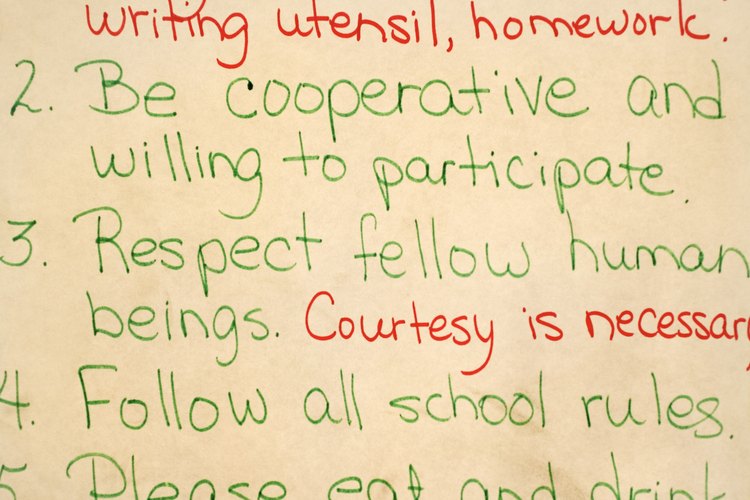 writing utensil, homework.
2. Be cooperative and
willing to participate.
3. Respect fellow human
beings. Courtesy is necessary
4. Follow all school rules.
5. Please eat and drink